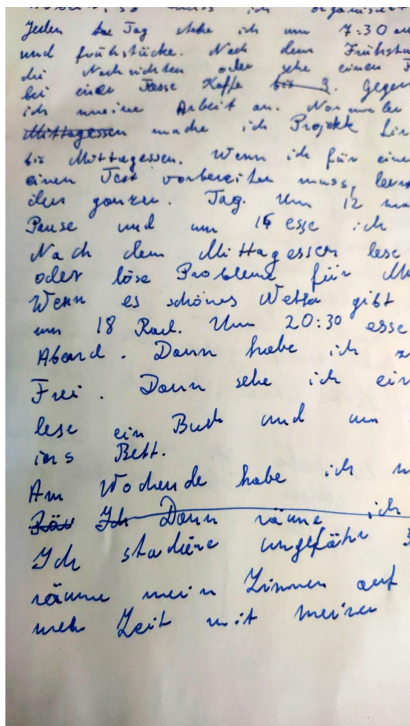 muss ich organisiert
Jeden Tag stehe ich um 7:30 au
und frühstücke. Nach dem Frühstü
die Nachrichten oder sehe einen F
bei einer Tasse Kaffe bis 9. Gegen
ich meine Arbeit an. Normaler
Mittagessen mache ich Projekte für
bis Mittagessen. Wenn ich für eine
einen Test vorbereiten muss, lerne
den ganzen. Tag. Um 12 ma
Pause und um 15 esse ich
Nach dem Mittagessen lese
oder löse Probleme für M
Wenn es schönes Wetter gibt
um 18 Rad. Um 20:30 esse
Abend. Dann habe ich z
Frei. Dann sehe ich ein
lese ein Buch und um
ins Bett.
Am Wochende habe ich m
Ich Dann räume ich
Ich studiere ungefähr 3
räume mein Zimmer auf
mehr Zeit mit meiner